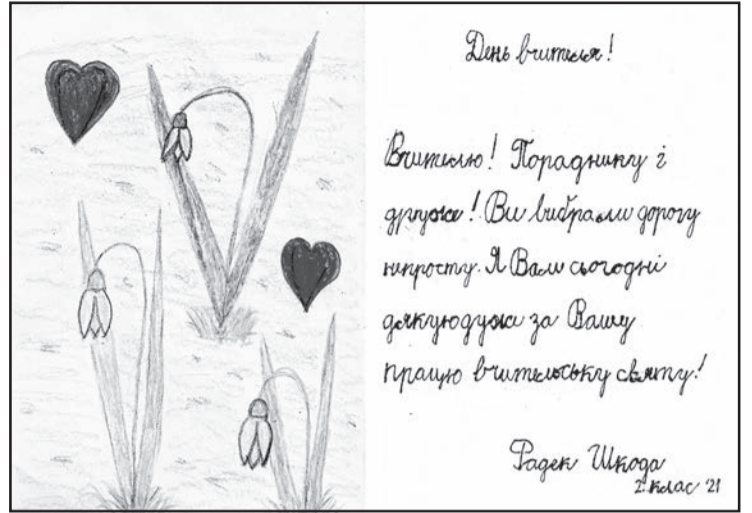 День вчителя!
Вчителю! Пораднику і
друже! Ви вибрали дорогу
непросту. Я Вам сьогодні
дякую дуже за Вашу
працю вчительську святу!
Радек Шкода
2. клас '21